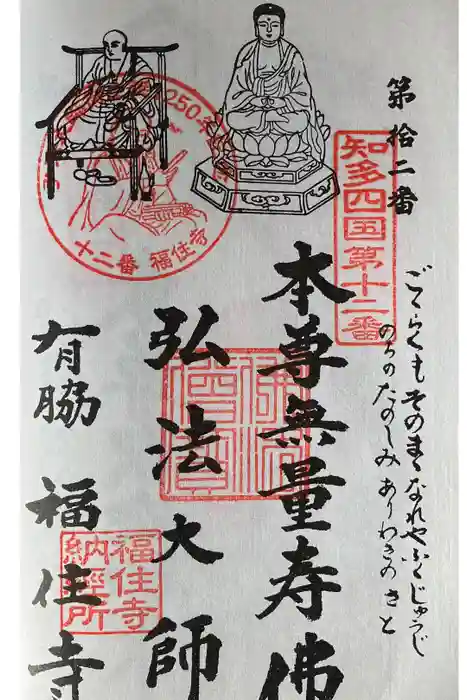 第拾二番
知多四国第十二番
ごくらくも そのまゝなれや ふくじゅうじ
のちの たのしみ ありわきの さと
本尊無量寿佛
弘法大師
有脇 福住寺
250
十二番 福住寺
佛法僧寶
福住寺
納経所